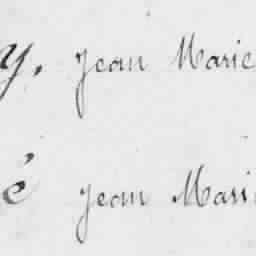 y, Jean Marie
é Jean Mari